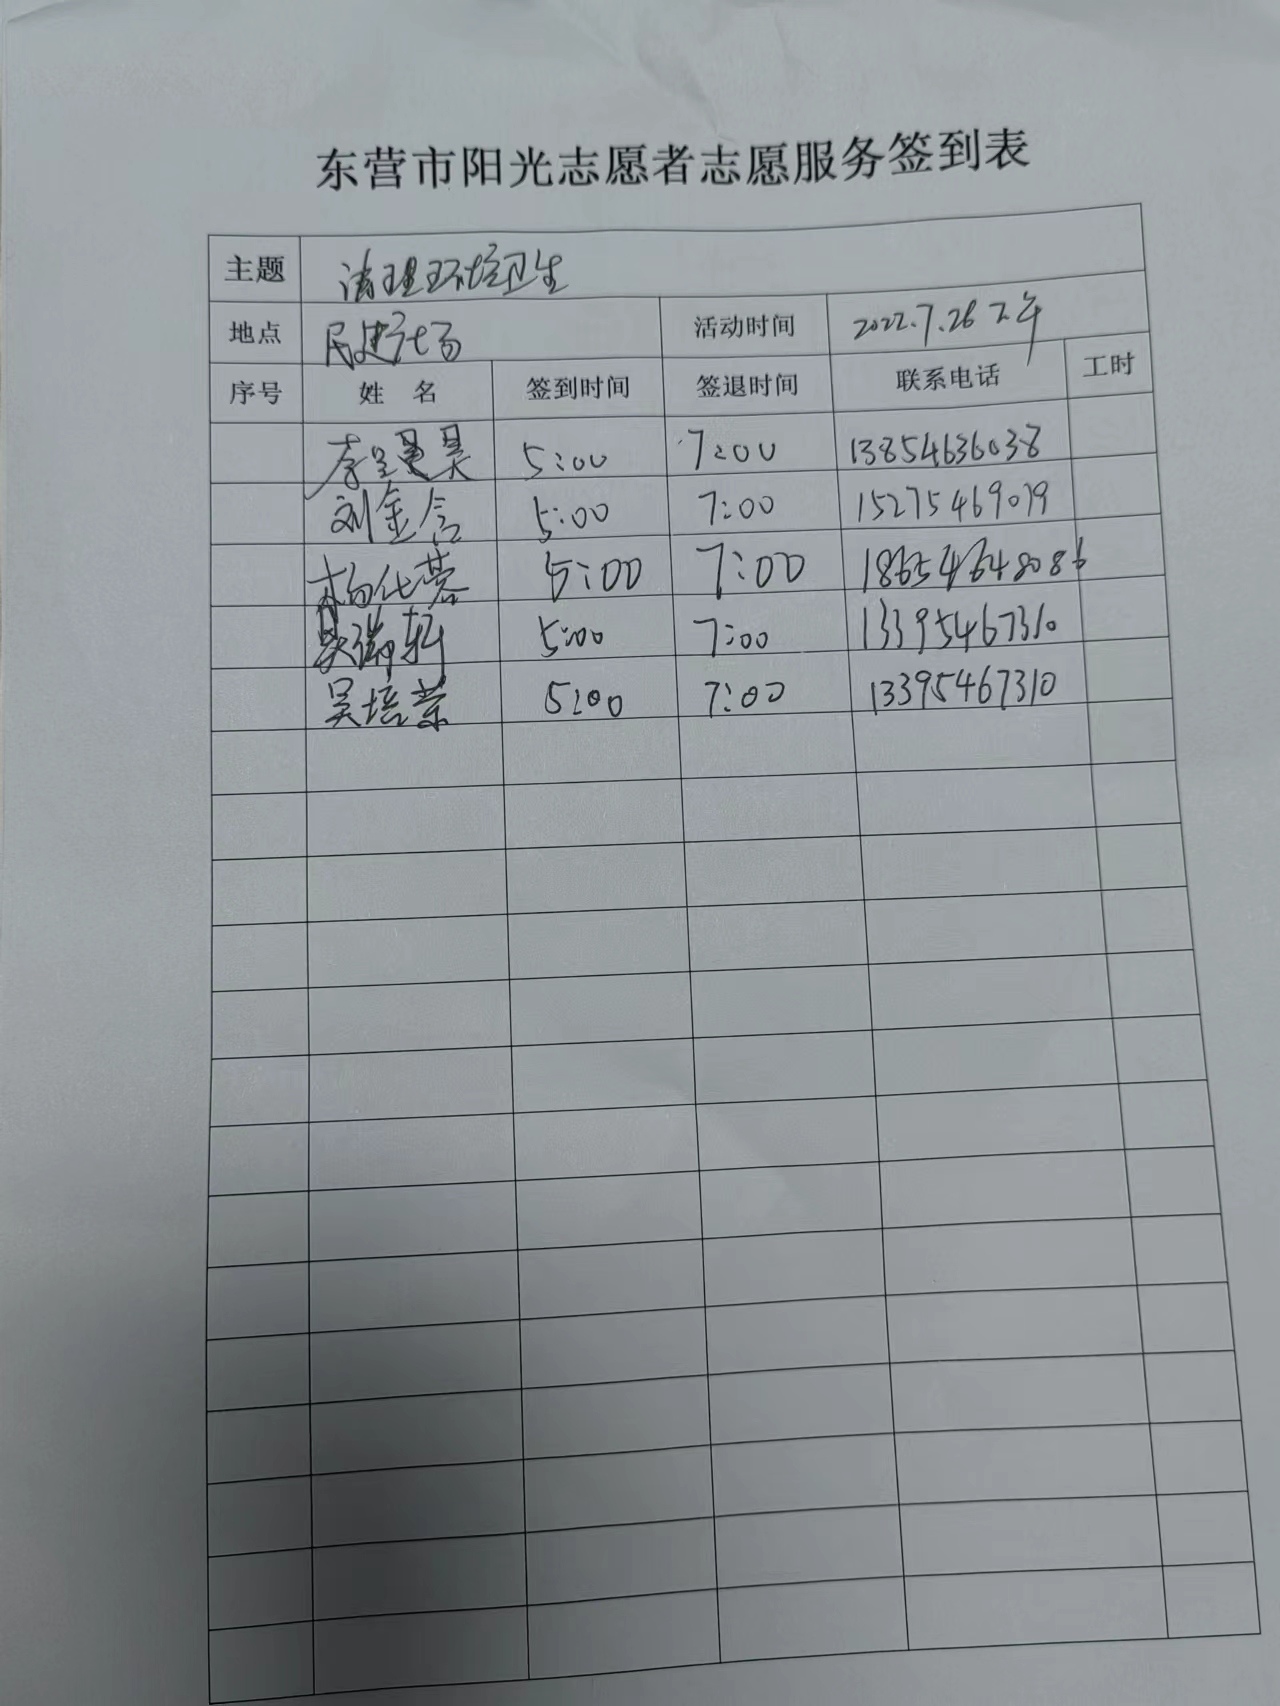 东营市阳光志愿者志愿服务签到表
主题 清理环境卫生
地点 民建社场 活动时间 2022.7.26 下午
序号 姓 名 签到时间 签退时间 联系电话 工时
李呈昊 5:00 7:00 13854636038
刘金含 5:00 7:00 15275469079
柏化蓉 5:00 7:00 18654648086
吴瑞轩 5:00 7:00 13395467310
吴培荣 5:00 7:00 13395467310